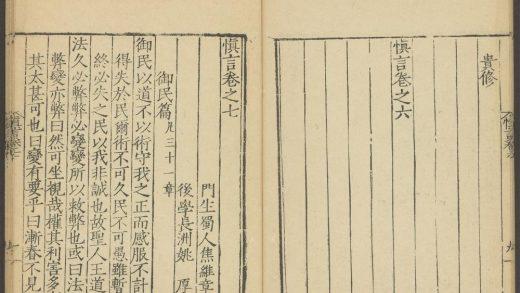 貴修
慎言卷之六
慎言卷之七
門生蜀人焦維章
後學長洲姚 厚
御民篇凡三十一章
御民以道不以術守我之正而感服不計
得失於民爾術不可久民不可愚雖暫
終必失之民以我非誠也故聖人王道
法久必弊弊必變變所以救弊也或曰法
弊變亦弊曰然可坐視哉權其利害多
其太甚可也曰變有要乎曰漸春不見